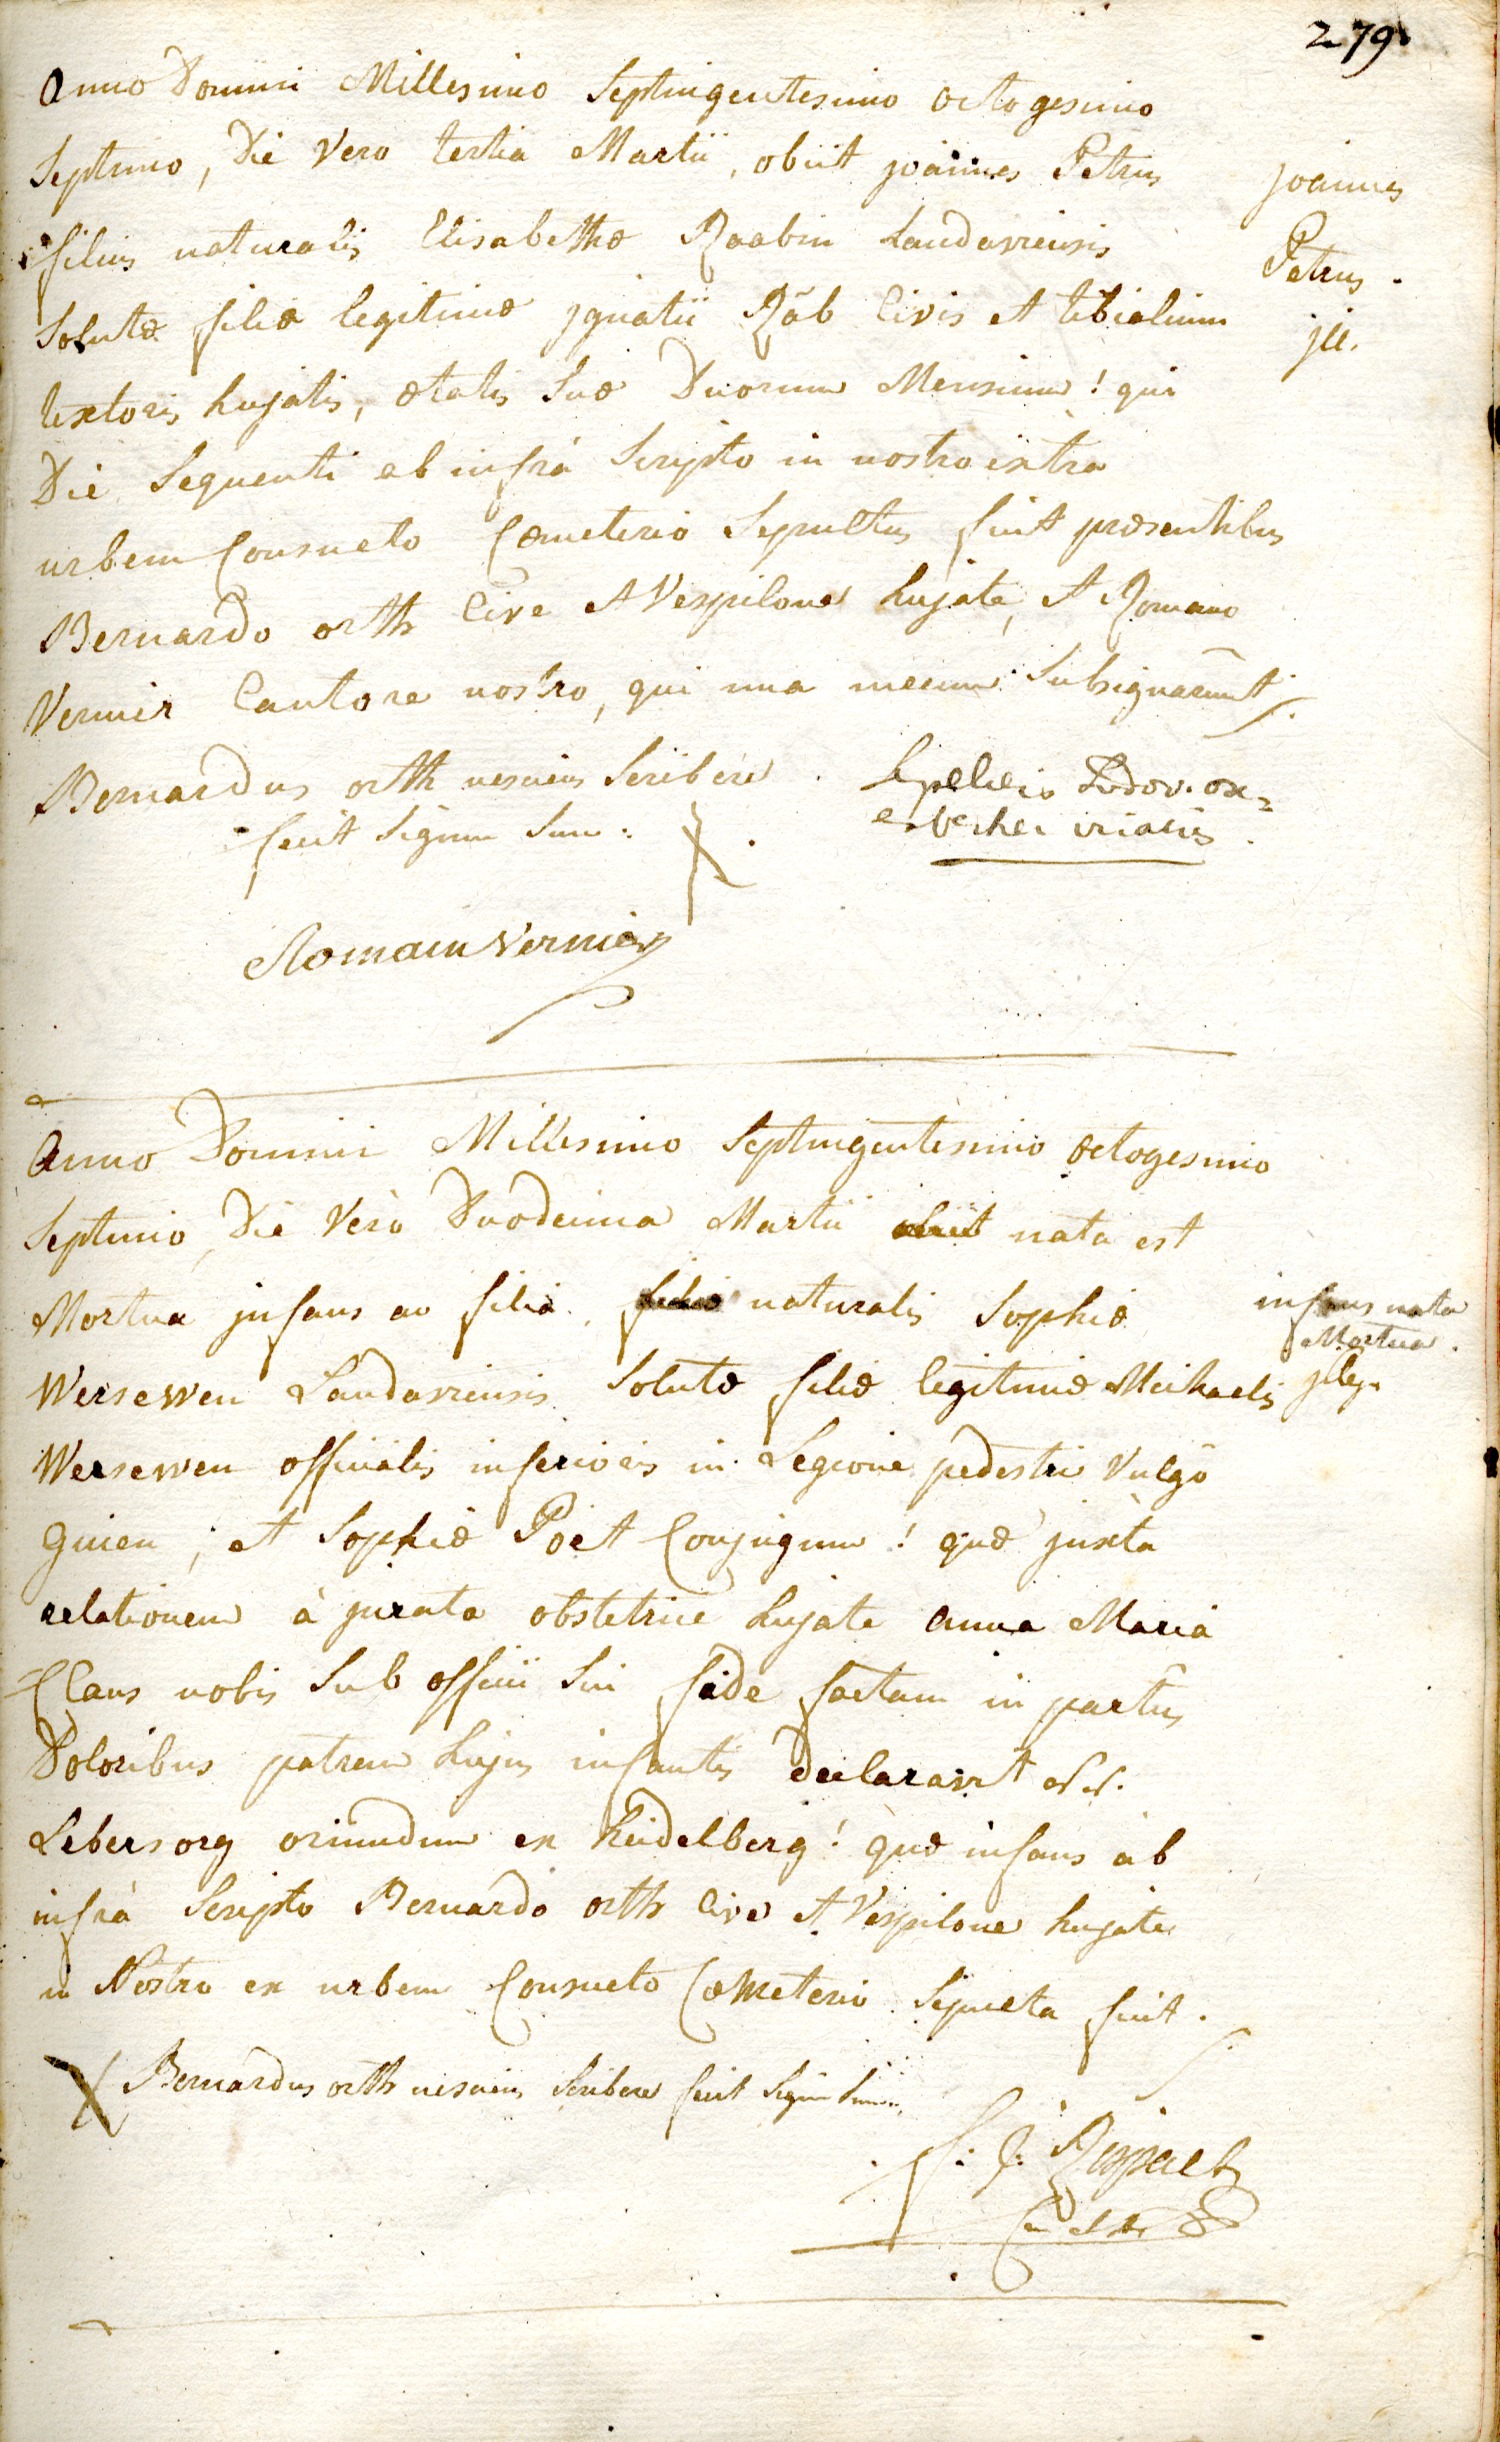 279.
Anno Domini Millesimo Septingentesimo octogesimo
Septimo, Die Vero tertia Martii, obiit joannes Petrus
filius naturalis Elisabethæ Raabin Landaviensis
Solutæ filiæ legitimæ jgnatii Rāb Civis et tibialium
textoris hujatis, ætatis Suæ Duorum Mensium! qui
Die Sequenti ab infrà Scripto in nostro extra
urbem Consueto Cœmeterio Sepultus fuit præsentibus
Bernardo orth Cive et Vespilone hujate, et Romano
Vernier Cantore nostro, qui una mecum Subsignarunt.
joannes
Petrus.
jll.
Bernardus orth nesciens Scribere.
fecit Signum Suum:
Romain Vernier
Anno Domini Millesimo Septingentesimo octogesimo
Septimo, Die Verò Duodecima Martii obiit nata est
Mortua jnfans ac filia naturalis Sophiæ
Wersewen Landaviensis Solutæ filiæ legitimæ Michaelis
Wersewen officialis inferioris in Legione pedestri Vulgò
Guien, et Sophiæ Poet Conjugum! quæ juxta
relationem à jurata obstetrice hujate Anna Maria
Claus nobis Sub officii Sui fide factam in partus
Doloribus patrem hujus infantis declaravit N.N.
Lebersorg oriundum ex heidelberg! quæ infans ab
infrà Scripto Bernardo orth Cive et Vespilone hujate
in Nostro ex urbem Consueto Cœmeterio Sepulta fuit.
infans nata
Mortua.
jlleg.
Bernardus orth nesciens Scribere fecit Signū Suum.